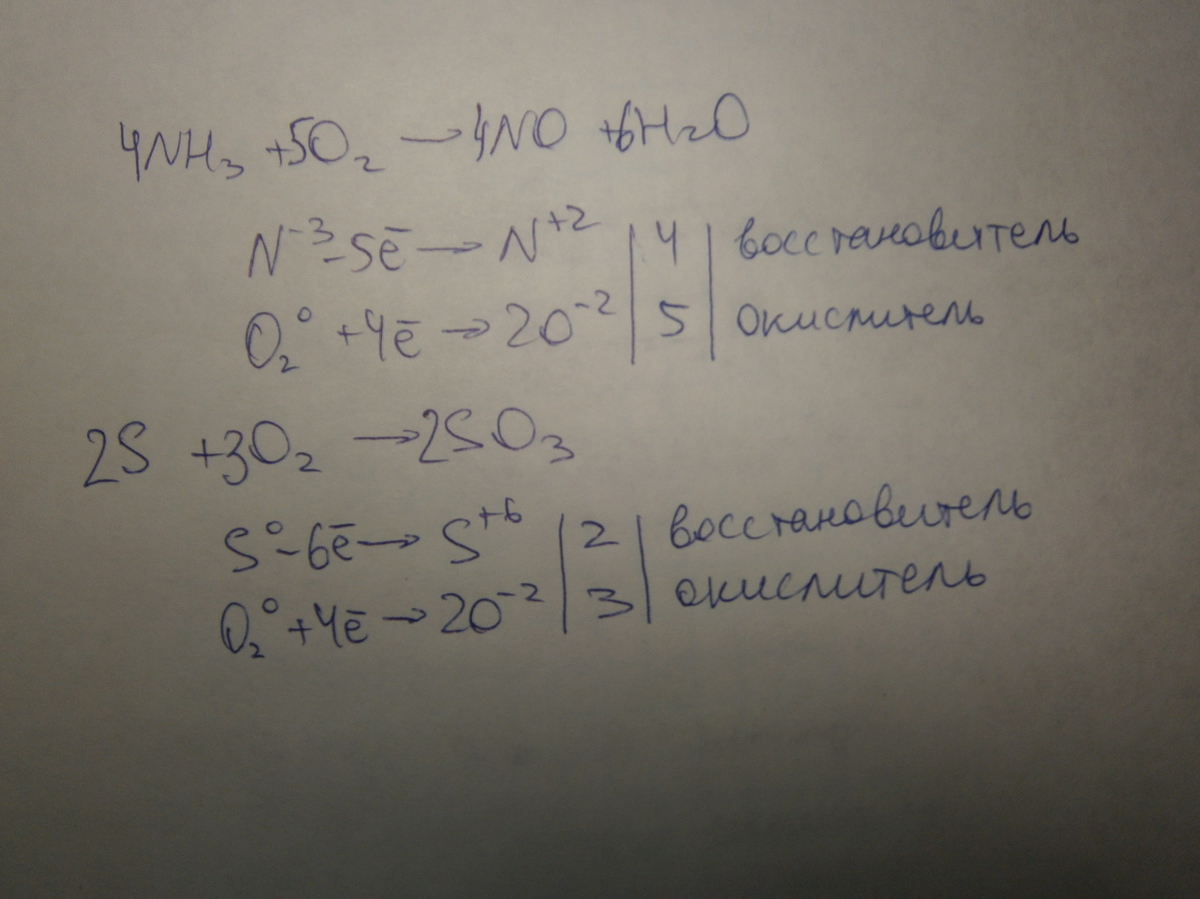 4NH₃ +5O₂ → 4NO +6H₂O
N⁻³ -5ē → N⁺² | 4 | восстановитель
O₂⁰ +4ē → 2O⁻² | 5 | окислитель
2S +3O₂ → 2SO₃
S⁰ -6ē → S⁺⁶ | 2 | восстановитель
O₂⁰ +4ē → 2O⁻² | 3 | окислитель